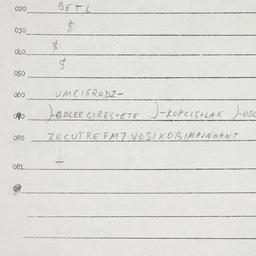 020 BETL
030 $
040 $
050 $
060 UMCIGROD2-
070 )-ODLERGIRESTETE )-KOPCISHLAK )-ODD
080 ZECUTREFM7VOSIXOBIMAINHANT
081